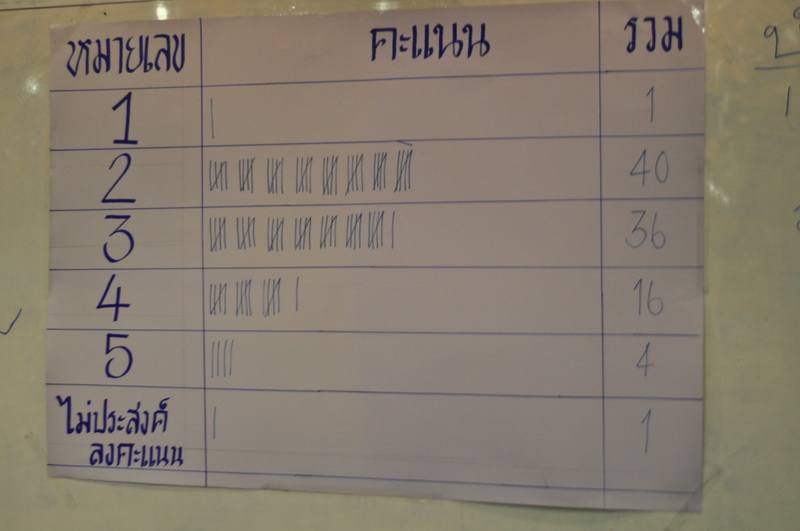 หมายเลข คะแนน รวม
1 1
2 40
3 36
4 16
5 4
ไม่ประสงค์
ลงคะแนน 1